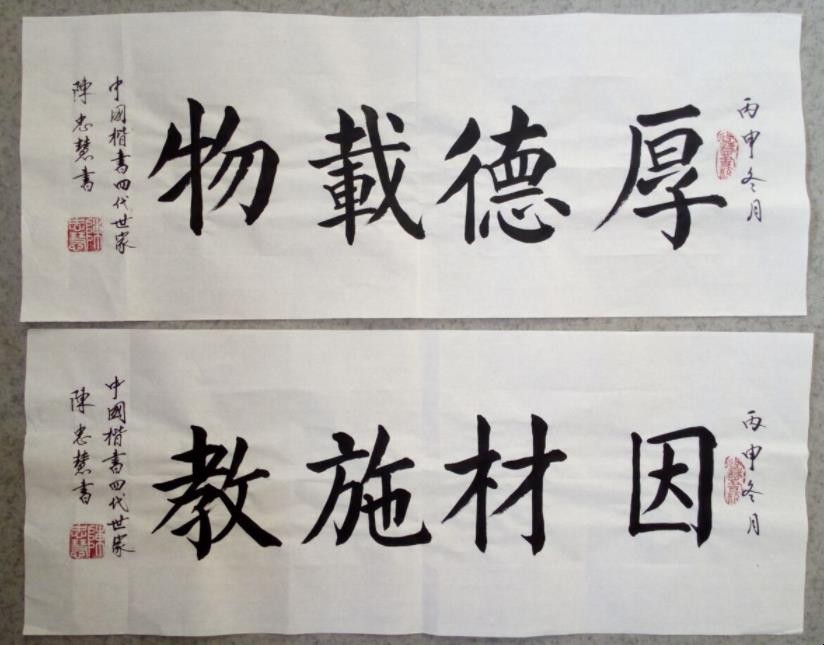 丙申冬月
厚德載物
中國楷書四代世家
陳忠慧書
丙申冬月
因材施教
中國楷書四代世家
陳忠慧書